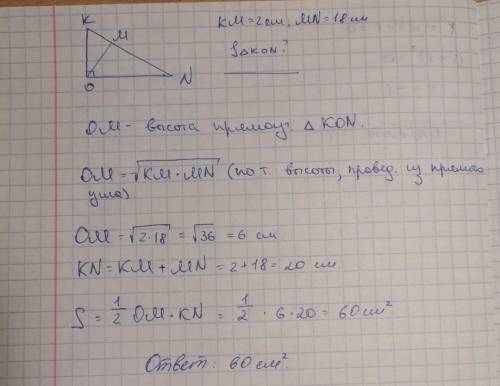 K
M
O
N
KM = 2 см, MN = 18 см
S△KON?
OM - высота прямоуг. △ KON.
OM = √KM · MN (по т. высоты, провед. из прямого
угла)
OM = √2·18 = √36 = 6 см
KN = KM + MN = 2 + 18 = 20 см
S = 1/2 OM · KN = 1/2 · 6 · 20 = 60 см²
Ответ: 60 см².